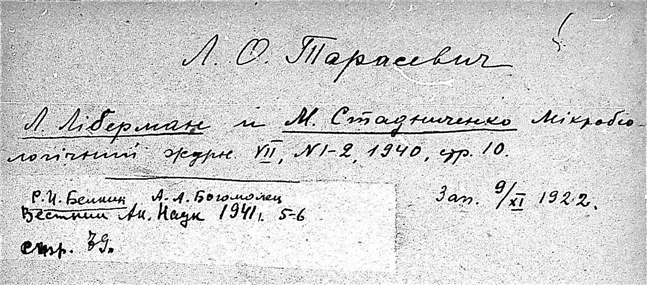 Л. О. Тарасевич
Л. Ліберман и М. Стадниченко Мікробіо-
логічний журн. VII, N1-2, 1940, стр. 10.
Р. И. Белкин А. А. Богомолец
Вестник Ак. Наук 1941г. 5-6
стр. 79.
Зап. 9/XI 1922.